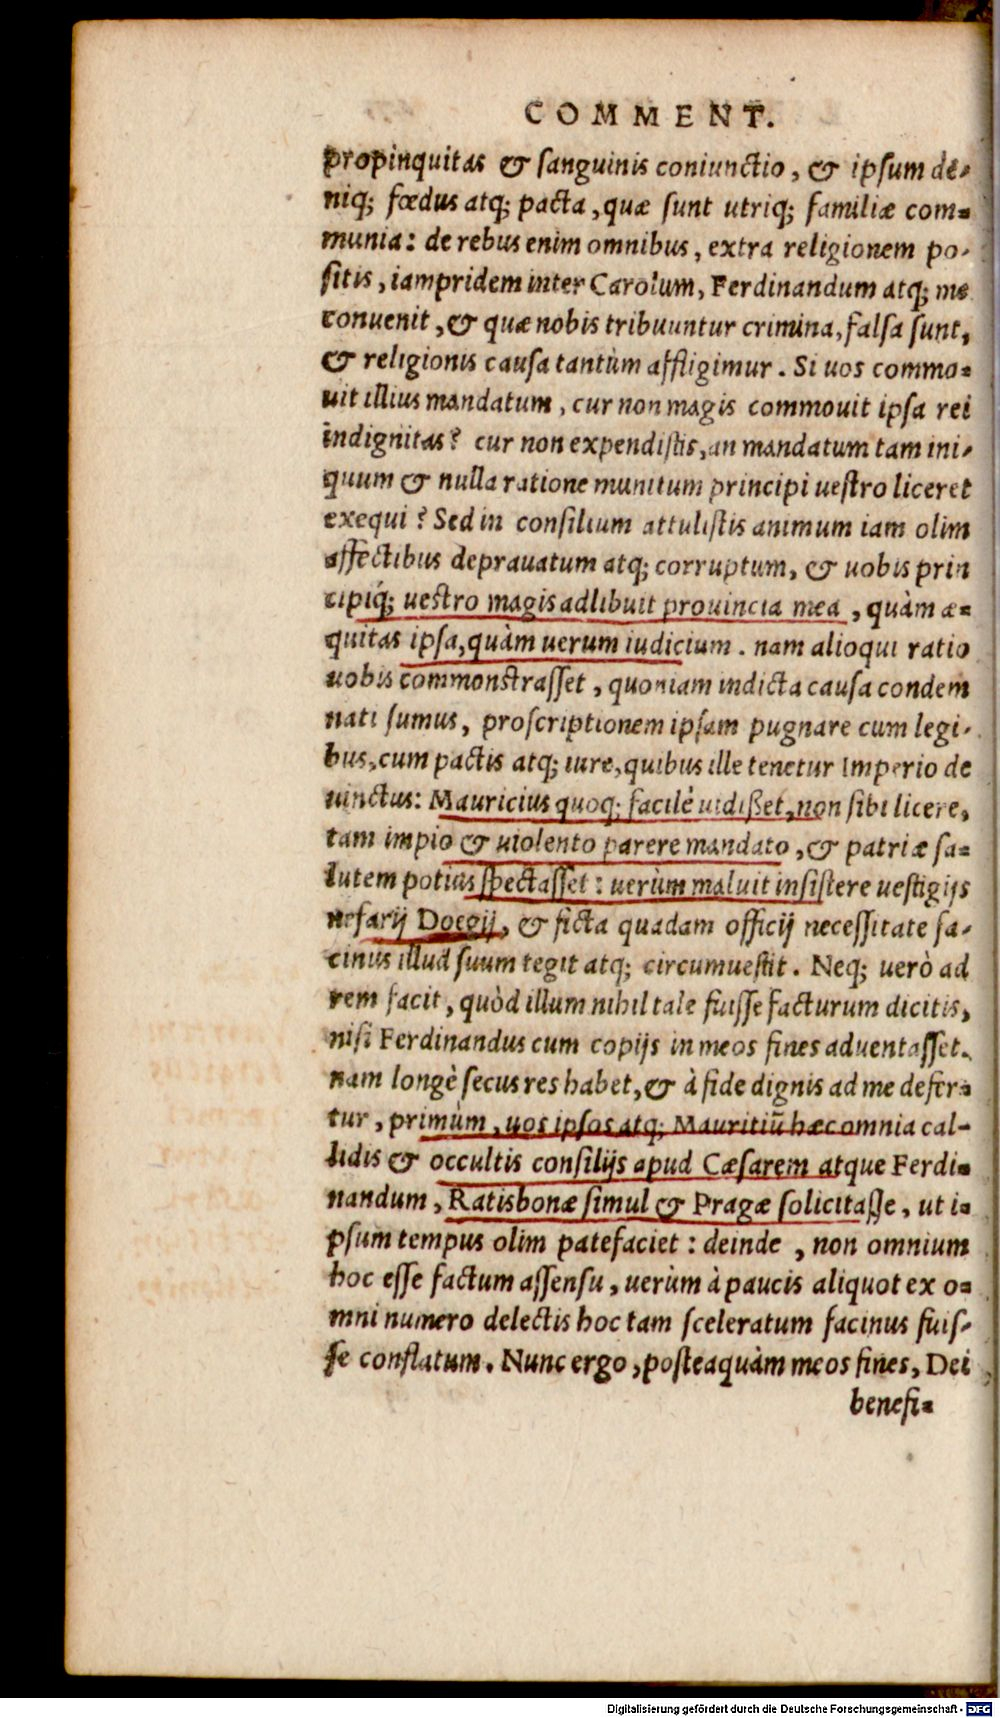 COMMENT.
propinquitas & sanguinis coniunctio, & ipsum de-
niq; fœdus atq; pacta, quæ sunt utriq; familiæ com-
munia: de rebus enim omnibus, extra religionem po-
sitis, iampridem inter Carolum, Ferdinandum atq; me
conuenit, & quæ nobis tribuuntur crimina, falsa sunt,
& religionis causa tantùm affligimur. Si uos commo-
uit illius mandatum, cur non magis commouit ipsa rei
indignitas? cur non expendistis, an mandatum tam ini-
quum & nulla ratione munitum principi uestro liceret
exequi? Sed in consilium attulistis animum iam olim
affectibus deprauatum atq; corruptum, & uobis prin
cipiq́; uestro magis adlibuit prouincia mea, quàm æ-
quitas ipsa, quàm uerum iudicium. nam alioqui ratio
uobis commonstrasset, quoniam indicta causa condem
nati sumus, proscriptionem ipsam pugnare cum legi-
bus, cum pactis atq; iure, quibus ille tenetur Imperio de
uinctus: Mauricius quoq; facilè uidisset, non sibi licere,
tam impio & uiolento parere mandato, & patriæ sa-
lutem potius spectasset: uerùm maluit insistere uestigijs
nefarij Doegij, & ficta quadam officij necessitate fa-
cinus illud suum tegit atq; circumuestit. Neq; uerò ad
rem facit, quòd illum nihil tale fuisse facturum dicitis,
nisi Ferdinandus cum copijs in meos fines aduentasset.
nam longè secus res habet, & à fide dignis ad me defer-
tur, primùm, uos ipsos atq; Mauritiū hæc omnia cal-
lidis & occultis consilijs apud Cæsarem atque Ferdi-
nandum, Ratisbonæ simul & Pragæ solicitasse, ut i-
psum tempus olim patefaciet: deinde, non omnium
hoc esse factum assensu, uerùm à paucis aliquot ex o-
mni numero delectis hoc tam sceleratum facinus fuis-
se conflatum. Nunc ergo, posteaquàm meos fines, Dei
benefi-
Digitalisierung gefördert durch die Deutsche Forschungsgemeinschaft - DFG